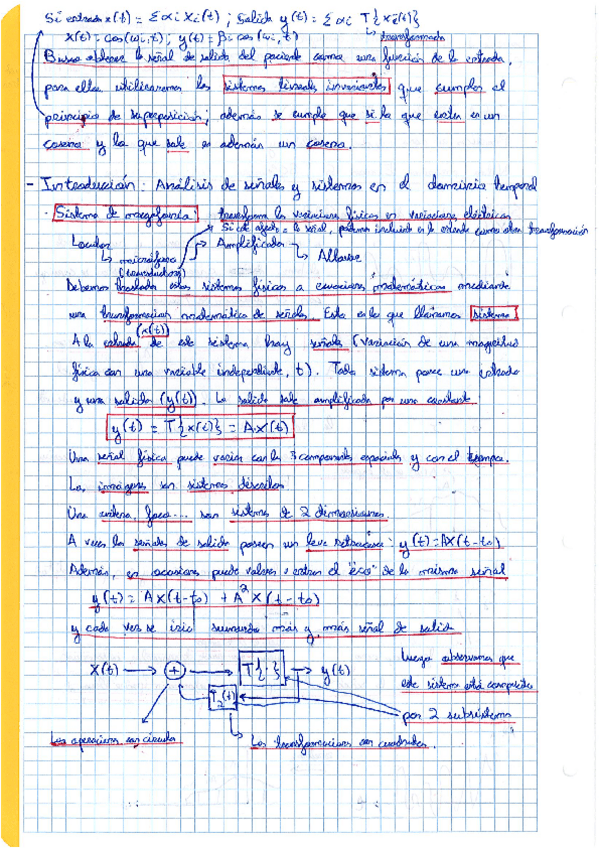 Si entrada x(t) = Σ αi Xi(t) ; Salida y(t) = Σ αi T{Xi(t)}
X(t) = cos(ωi, t) ; y(t) = βi cos(ωi, t) transformada
Busco obtener la señal de salida del paciente como una función de la entrada,
para ello utilizaremos los sistemas lineales invariantes que cumplen el
principio de superposición; además se cumple que si lo que entra es un
coseno y lo que sale es además un coseno.
- Introducción: Análisis de señales y sistemas en el dominio temporal
· Sistema de megafonía transforma las variaciones físicas en variaciones eléctricas
Si el a la señal, podemos incluirlo en la entrada como otra transformación
Locutor Amplificador
micrófono Altavoz
(transductores)
Debemos trasladar estos sistemas físicos a ecuaciones matemáticas mediante
una transformación matemática de señales. Este es lo que llamamos Sistema
(x(t))
A la entrada de este sistema hay señales (variación de una magnitud
física con una variable independiente, t). Todo sistema posee una entrada
y una salida (y(t)). La salida sale amplificada por una constante
y(t) = T{x(t)} = A·x(t)
Una señal física puede variar con las 3 componentes espaciales y con el tiempo.
Las imágenes son sistemas discretos
Una antena, foco... son sistemas de 2 dimensiones.
A veces las señales de salida poseen un leve retraso: y(t) = AX(t-to)
Además, en ocasiones puede volver a entrar el "eco" de la misma señal
y(t) = AX(t-to) + A² X(t-to)
y cada vez se irá sumando más y más señal de salida
X(t) → + → T{·} → y(t)
T2(t)
Luego observamos que
este sistema está compuesto
por 2 subsistemas
Las operaciones son círculos
Las transformaciones son cuadrados.